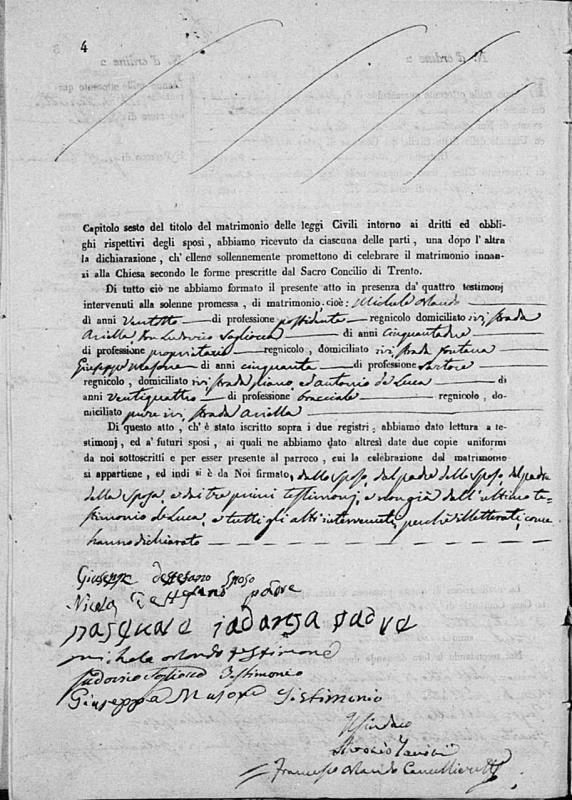 4
Capitolo sesto del titolo del matrimonio delle leggi Civili intorno ai dritti ed obbli-
ghi rispettivi degli sposi, abbiamo ricevuto da ciascuna delle parti, una dopo l'altra
la dichiarazione, ch' elleno sollennemente promettono di celebrare il matrimonio innan-
zi alla Chiesa secondo le forme prescritte dal Sacro Concilio di Trento.
Di tutto ciò ne abbiamo formato il presente atto in presenza da' quattro testimonj
intervenuti alla solenne promessa, di matrimonio cioè: Michele Orlando
di anni Ventotto di professione possidente regnicolo domiciliato ivi, strada
Ariella di anni cinquantadue
di professione proprietario regnicolo, domiciliato ivi, strada fontana
Giuseppe Masone di anni cinquanta di professione Sartore
regnicolo, domiciliato ivi, strada piano, e Antonio de Luca di
anni Ventiquattro di professione bracciale regnicolo, do-
miciliato pure ivi, strada Ariella
Di questo atto, ch'è stato iscritto sopra i due registri, abbiamo dato lettura a te-
stimonj, ed a' futuri sposi, ai quali ne abbiamo dato altresì date due copie uniformi
da noi sottoscritti e per esser presente al parroco, cui la celebrazione del matrimonio
si appartiene, ed indi si è da Noi firmato, dallo sposo, dal padre dello sposo, dal padre
della sposa, e dai tre primi testimonj, e non già dall'ultimo te-
stimonio de Luca, e tutti gli altri intervenuti, perchè illetterati come
hanno dichiarato
Giuseppe deStefano Sposo
Nicola DeStefano padre
pasquale iadanza padre
michele orlando testimone
Testimonio
Giuseppe Masone Testimonio
Il Sindaco
Francesco Orlando Cancelliere